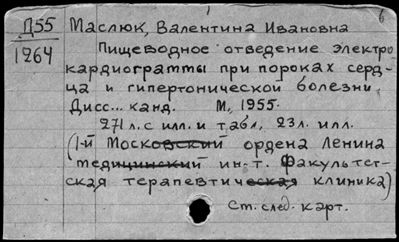 6
Д55 Маслюк, Валентина Ивановна
1264 Пищеводное отведение электро
кардиограммы при пороках серд-
ца и гипертонической болезни.
Дисс... канд. М, 1955.
271 л. с илл. и табл, 23 л. илл.
(1-й Московский ордена Ленина
медицинский ин-т. Факультет-
ская терапевтическая клиника)
Ст. след. карт.